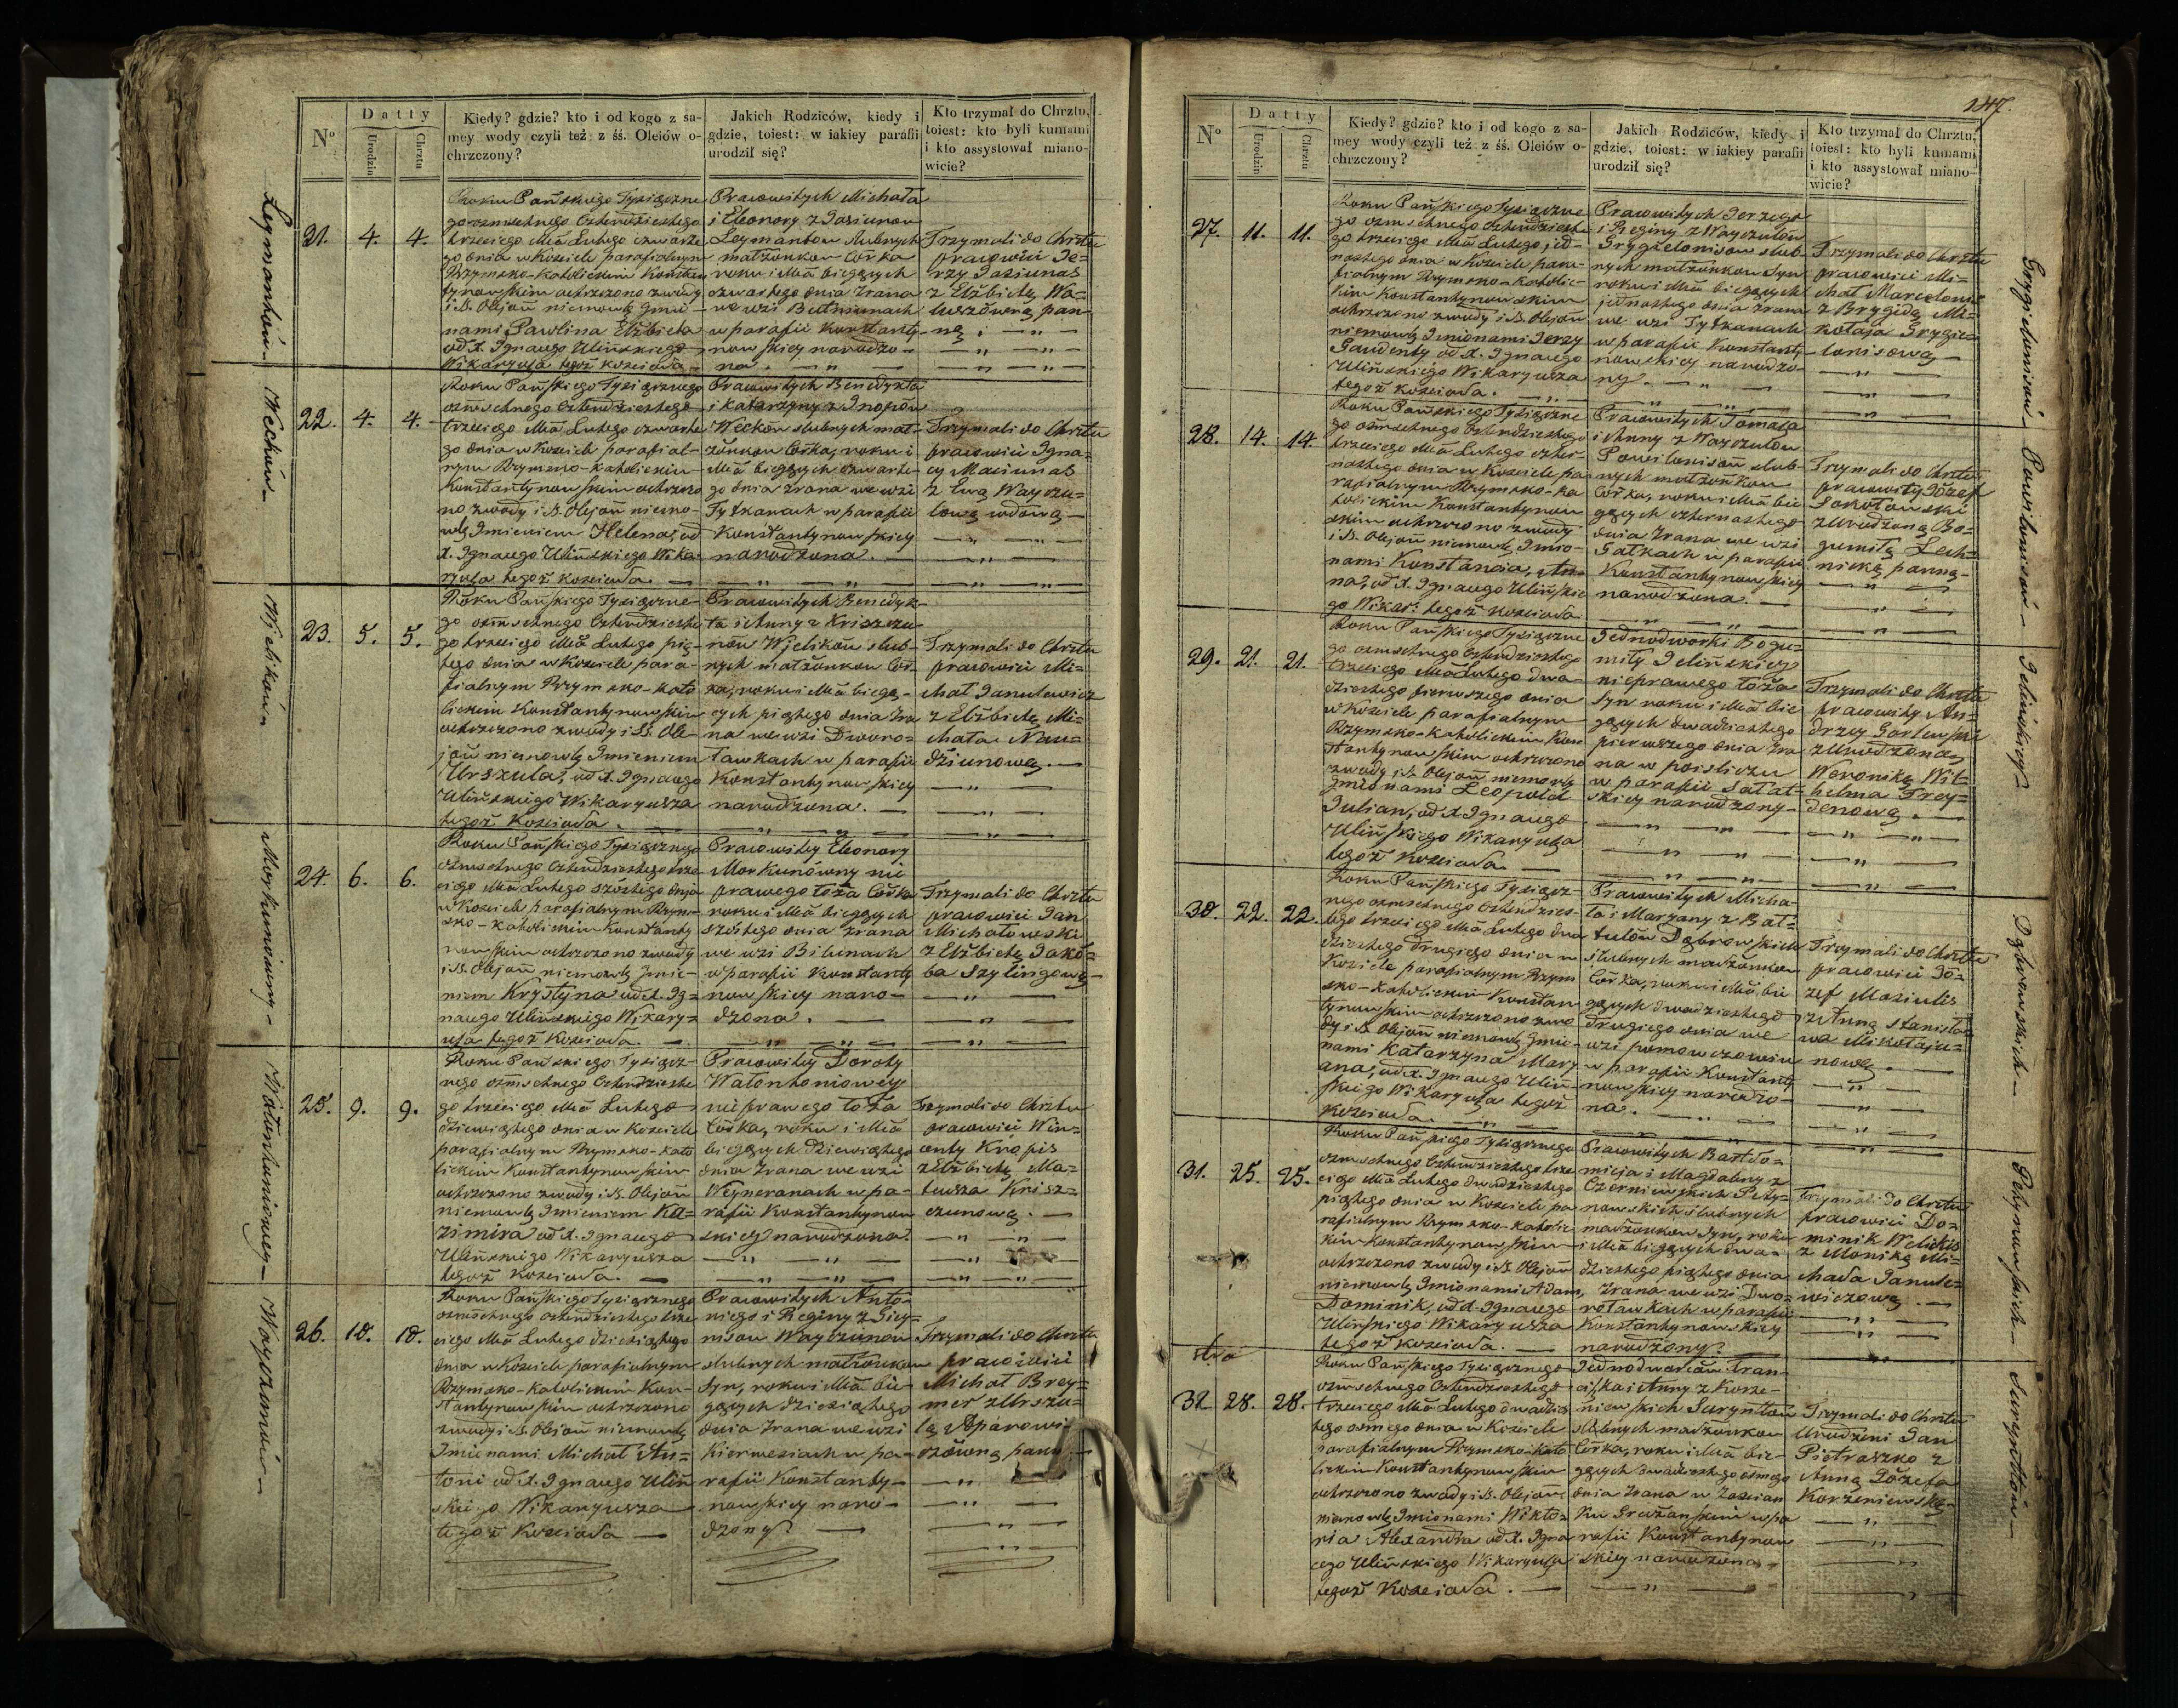 Nº
Datty
Urodzin
Chrztu
Kiedy? gdzie? kto i od kogo z sa-
mey wody czyli też z śś. Oleiów o-
chrzczony?
Jakich Rodziców, kiedy i
gdzie, toiest: w iakiey parafii
urodził się?
Kto trzymał do Chrztu,
toiest: kto byli kumami
i kto assystował miano-
wicie?
Leymantów
21. 4. 4.
Roku Pańskiego Tysiączne
go osmsetnego Czterdziestego
trzeciego Mca Lutego czwarte
go dnia w Kosciele parafialnym
Rzymsko-Katolickim Konstan
tynowskim ochrzczono z wody
i S. Olejów niemowlę Imio-
nami Pawlina Elżbieta
od X. Ignacego Ulińskiego
Wikaryusza tegoż Kościoła
Pracowitych Michała
i Eleonory z Jasiunow
Leymantow slubnych
małżonkow Córka
roku i Mca bieżących
czwartego dnia zrana
we wsi Butniunach
w parafii Konstanty-
nowskiey narodzo-
na.
Trzymali do Chrztu
pracowici Je=
rzy Jasiunas
z Elżbietą Wa=
luszówną pan
ną
Weckow
22. 4. 4.
Roku Pańskiego Tysiącznego
osmsetnego Czterdziestego
trzeciego Mca Lutego czwarte
go dnia w Kosciele parafial-
nym Rzymsko-Katolickim
Konstantynowskim ochrzczo
no z wody i S. Olejów niemo-
wlę Imieniem Helena, od
X. Ignacego Ulińskiego Wika-
ryusza tegoż Kościoła.
Pracowitych Benedykta
i Katarzyny z Knopow
Weckow slubnych mał-
żonkow Córka, roku i
Mca bieżących czwarte-
go dnia zrana we wsi
Tytkanach w parafii
Konstantynowskiey
narodzona.
Trzymali do Chrztu
pracowici Igna=
cy Maciunas
z Ewą Wayczu=
lową wdową
Wielikow
23. 5. 5.
Roku Pańskiego Tysiączne-
go osmsetnego Czterdzieste
go trzeciego Mca Lutego pią-
tego dnia w Kosciele para-
fialnym Rzymsko-Kato
lickim Konstantynowskim
ochrzczono z wody i S. Ole-
jów niemowlę Imieniem
Urszula, od X. Ignacego
Ulińskiego Wikaryusza
tegoż Kościoła.
Pracowitych Benedyk-
ta i Anny z Kriszczu-
now Wielikow slub-
nych małżonkow Cór-
ka, roku i Mca bieżą-
cych piątego dnia zra
na we wsi Dworo-
ławkach w parafii
Konstantynowskiey
narodzona.
Trzymali do Chrztu
pracowici Mi=
chał Janulewicz
z Elżbietą Mi=
chała Nau=
dżiunową.
Morkunowny
24. 6. 6.
Roku Pańskiego Tysiącznego
osmsetnego Czterdziestego trze
ciego Mca Lutego szostego dnia
w Kosciele parafialnym Rzym
sko-Katolickim Konstanty
nowskim ochrzczono z wody
i S. Olejów niemowlę Imie-
niem Krystyna od X. Ig-
nacego Ulińskiego Wikary-
usza tegoż Kościoła.
Pracowitey Eleonory
Morkunówny nie
prawego łoża Córka
roku i Mca bieżących
szostego dnia zrana
we wsi Bilunach
w parafii Konstanty
nowskiey naro-
dzona.
Trzymali do Chrztu
pracowici Jan
Michałowski
z Elżbietą Jakó=
ba Szylingową
Watonhoniowey
25. 9. 9.
Roku Pańskiego Tysiącz-
nego osmsetnego Czterdzieste
go trzeciego Mca Lutego
dziewiątego dnia w Kosciele
parafialnym Rzymsko-Kato
lickim Konstantynowskim
ochrzczono z wody i S. Olejów
niemowlę Imieniem Ka-
zimira od X. Ignacego
Ulińskiego Wikaryusza
tegoż Kościoła.
Pracowitey Doroty
Watonhoniowey
nieprawego łoża
Córka, roku i Mca
bieżących dziewiątego
dnia zrana we wsi
Weyneranach w pa-
rafii Konstantynow
skiey narodzona.
Trzymali do Chrztu
pracowici Win=
centy Knopis
z Elżbietą Ma=
teusza Krisz=
czunową.
Wayczunow
26. 10. 10.
Roku Pańskiego Tysiącznego
osmsetnego czterdziestego trze
ciego Mca Lutego dziesiątego
dnia w Kosciele parafialnym
Rzymsko-Katolickim Kon-
stantynowskim ochrzczono
z wody i S. Olejów niemowlę
Imionami Michał An-
toni od X. Ignacego Uliń
skiego Wikaryusza
tegoż Kościoła
Pracowitych Anto-
niego i Reginy z
Wayczunow
slubnych małżonkow
Syn, roku i Mca bie-
żących dziesiątego
dnia zrana we wsi
w pa-
rafii Konstanty-
nowskiey naro-
dzony.
Trzymali do Chrztu
pracowici
Michał Brey=
mer z Urszu=
lą Aparowi
czówną panną
147.
Nº
Datty
Urodzin
Chrztu
Kiedy? gdzie? kto i od kogo z sa-
mey wody czyli też z śś. Oleiów o-
chrzczony?
Jakich Rodziców, kiedy i
gdzie, toiest: w iakiey parafii
urodził się?
Kto trzymał do Chrztu,
toiest: kto byli kumami
i kto assystował miano-
wicie?
Grygielonisow
27. 11. 11.
Roku Pańskiego Tysiączne
go osmsetnego Czterdzieste
go trzeciego Mca Lutego jed-
nastego dnia w Kosciele para-
fialnym Rzymsko-Katolic-
kim Konstantynowskim
ochrzczono z wody i S. Olejów
niemowlę Imionami Jerzy
Gaudenty od X. Ignacego
Ulińskiego Wikaryusza
tegoż Kościoła.
Pracowitych Jerzego
i Reginy z Wayczulow
Grygielonisow slub-
nych małżonkow Syn
roku i Mca bieżących
jednastego dnia zrana
we wsi Tytkanach
w parafii Konstanty-
nowskiey narodzo-
ny.
Trzymali do Chrztu
pracowici Mi=
chał Marcelonis
z Brygidą Mi=
kołaja Grygie=
lonisową
Powilonisow
28. 14. 14.
Roku Pańskiego Tysiączne
go osmsetnego Czterdziestego
trzeciego Mca Lutego czter-
nastego dnia w Kosciele pa
rafialnym Rzymsko-Ka
tolickim Konstantynow
skim ochrzczono z wody
i S. Olejów niemowlę Imio-
nami Konstancia, An-
na, od X. Ignacego Ulińskie
go Wikar: tegoż Kościoła
Pracowitych Tomasza
i Anny z Wayczulow
Powilonisow slub-
nych małżonkow
Córka, roku i Mca bie
żących czternastego
dnia zrana we wsi
Gałkach w parafii
Konstantynowskiey
narodzona.
Trzymali do Chrztu
pracowity Józef
Sakołowski
z Urodzoną Bo=
gumiłą Lech=
nicką panną
Jelińskiey
29. 21. 21.
Roku Pańskiego Tysiączne
go osmsetnego Czterdziestego
trzeciego Mca Lutego dwa-
dziestego pierwszego dnia
w Kosciele parafialnym
Rzymsko-Katolickim Kon
stantynowskim ochrzczono
z wody i S. Olejów niemowlę
Imionami Leopold
Julian, od X. Ignacego
Ulińskiego Wikaryusza
tegoż Kościoła
Jednodworki Bogu-
miły Jelińskiey
nieprawego łoża
Syn roku i Mca bie
żących dwadziestego
pierwszego dnia zra
na w
w parafii Sałat-
skiey narodzony
Trzymali do Chrztu
pracowity An=
drzey Gorlewski
z Urodzoną
Weroniką Wil=
helma Frey=
denową.
Dąbrowskich
30. 22. 22.
Roku Pańskiego Tysiącz-
nego osmsetnego Czterdzies-
tego trzeciego Mca Lutego dwa
dziestego drugiego dnia w
Kosciele parafialnym Rzym
sko-Katolickim Konstan
tynowskim ochrzczono z wo
dy i S. Olejów niemowlę Imio-
nami Katarzyna Mary-
ana, od X. Ignacego Uliń
skiego Wikaryusza tegoż
Kościoła
Pracowitych Micha-
ła i Maryany z Bał-
tulow Dąbrowskich
slubnych małżonkow
Córka, roku i Mca bie
żących dwadziestego
drugiego dnia we
wsi
w parafii Konstanty
nowskiey narodzo-
na.
Trzymali do Chrztu
pracowici Jó=
zef Masiulis
z Anną Stanisła
wa Mikołaju=
nową.
Petynowskich
31. 25. 25.
Roku Pańskiego Tysiącznego
osmsetnego Czterdziestego trze
ciego Mca Lutego dwadziestego
piątego dnia w Kosciele pa
rafialnym Rzymsko-Katolic
kim Konstantynowskim
ochrzczono z wody i S. Olejów
niemowlę Imionami Adam,
Dominik, od X. Ignacego
Ulińskiego Wikaryusza
tegoż Kościoła.
Pracowitych Bartło-
mieja i Magdaleny z
Czerniewskich Pety-
nowskich slubnych
małżonkow Syn, roku
i Mca bieżących dwa-
dziestego piątego dnia
zrana we wsi Dwo-
roławkach w parafii
Konstantynowskiey
narodzony.
Trzymali do Chrztu
pracowici Do=
minik Welickis
z Moniką Mi=
chała Janule=
wiczową.
Suryntow
32. 28. 28.
Roku Pańskiego Tysiącznego
osmsetnego Czterdziestego
trzeciego Mca Lutego dwadzies
tego osmego dnia w Kosciele
parafialnym Rzymsko-Kato
lickim Konstantynowskim
ochrzczono z wody i S. Olejów
niemowlę Imionami Wikto-
ria Alexandra od X. Igna
cego Ulińskiego Wikaryusza
tegoż Kościoła.
Jednodworców Fran-
ciszka i Anny z Korze-
niewskich Suryntow
slubnych małżonkow
Córka, roku i Mca bie-
żących dwadziestego osmego
dnia zrana w Zascian
ku w pa
rafii Konstantynow
skiey narodzona.
Trzymali do Chrztu
Urodzeni Jan
Pietraszko z
Anną Józefa
Korzeniewską